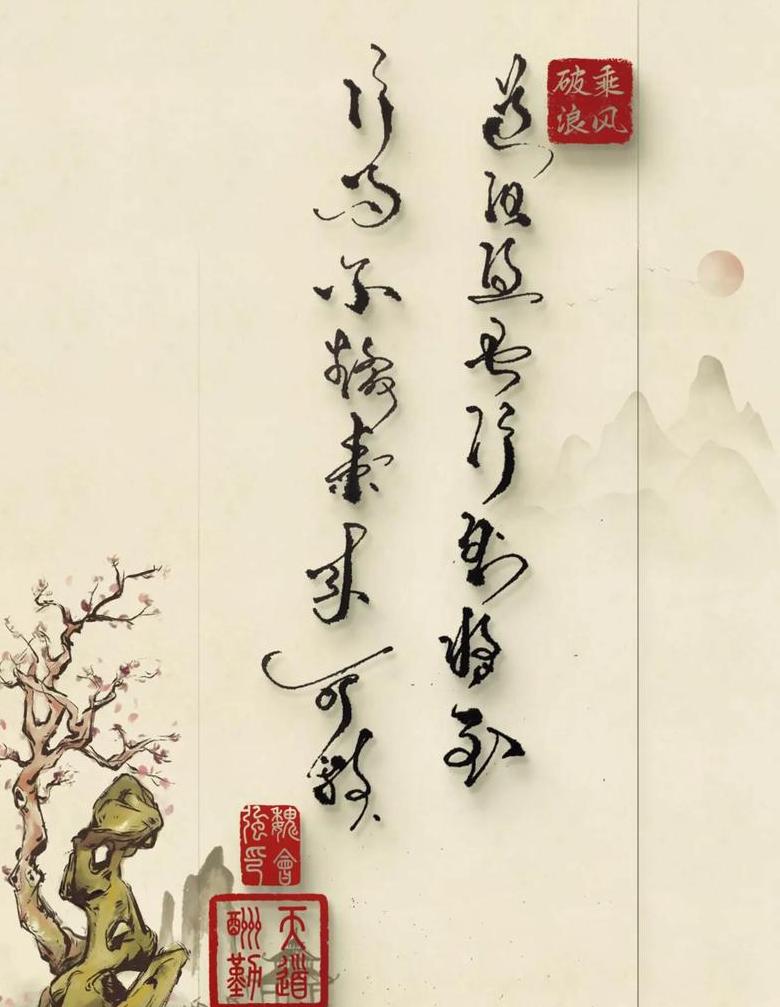 乘风破浪
道阻且长行则将至
行而不辍未来可期
魏會强印
天道酬勤